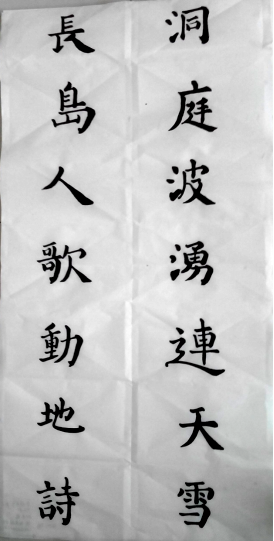 洞庭波湧連天雪
長島人歌動地詩